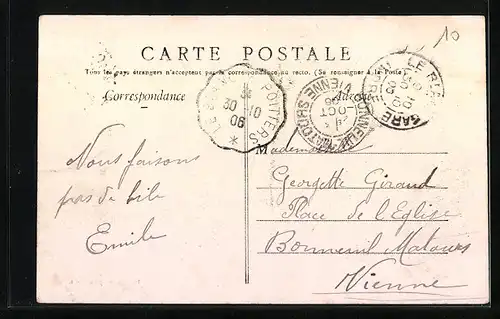 10
CARTE POSTALE
Tous les pays étrangers n'acceptent pas la correspondance au recto. (Se renseigner à la Poste)
Correspondance
Adresse
POITIERS
30 10
06
BONNEUIL-MATOURS
VIENNE
OCT
06
LE BLANC
GARE
Nous faisons
pas de bile
Emile
Mademoiselle
Georgette Giraud
Place de l'Eglise
Bonneuil Matours
Vienne